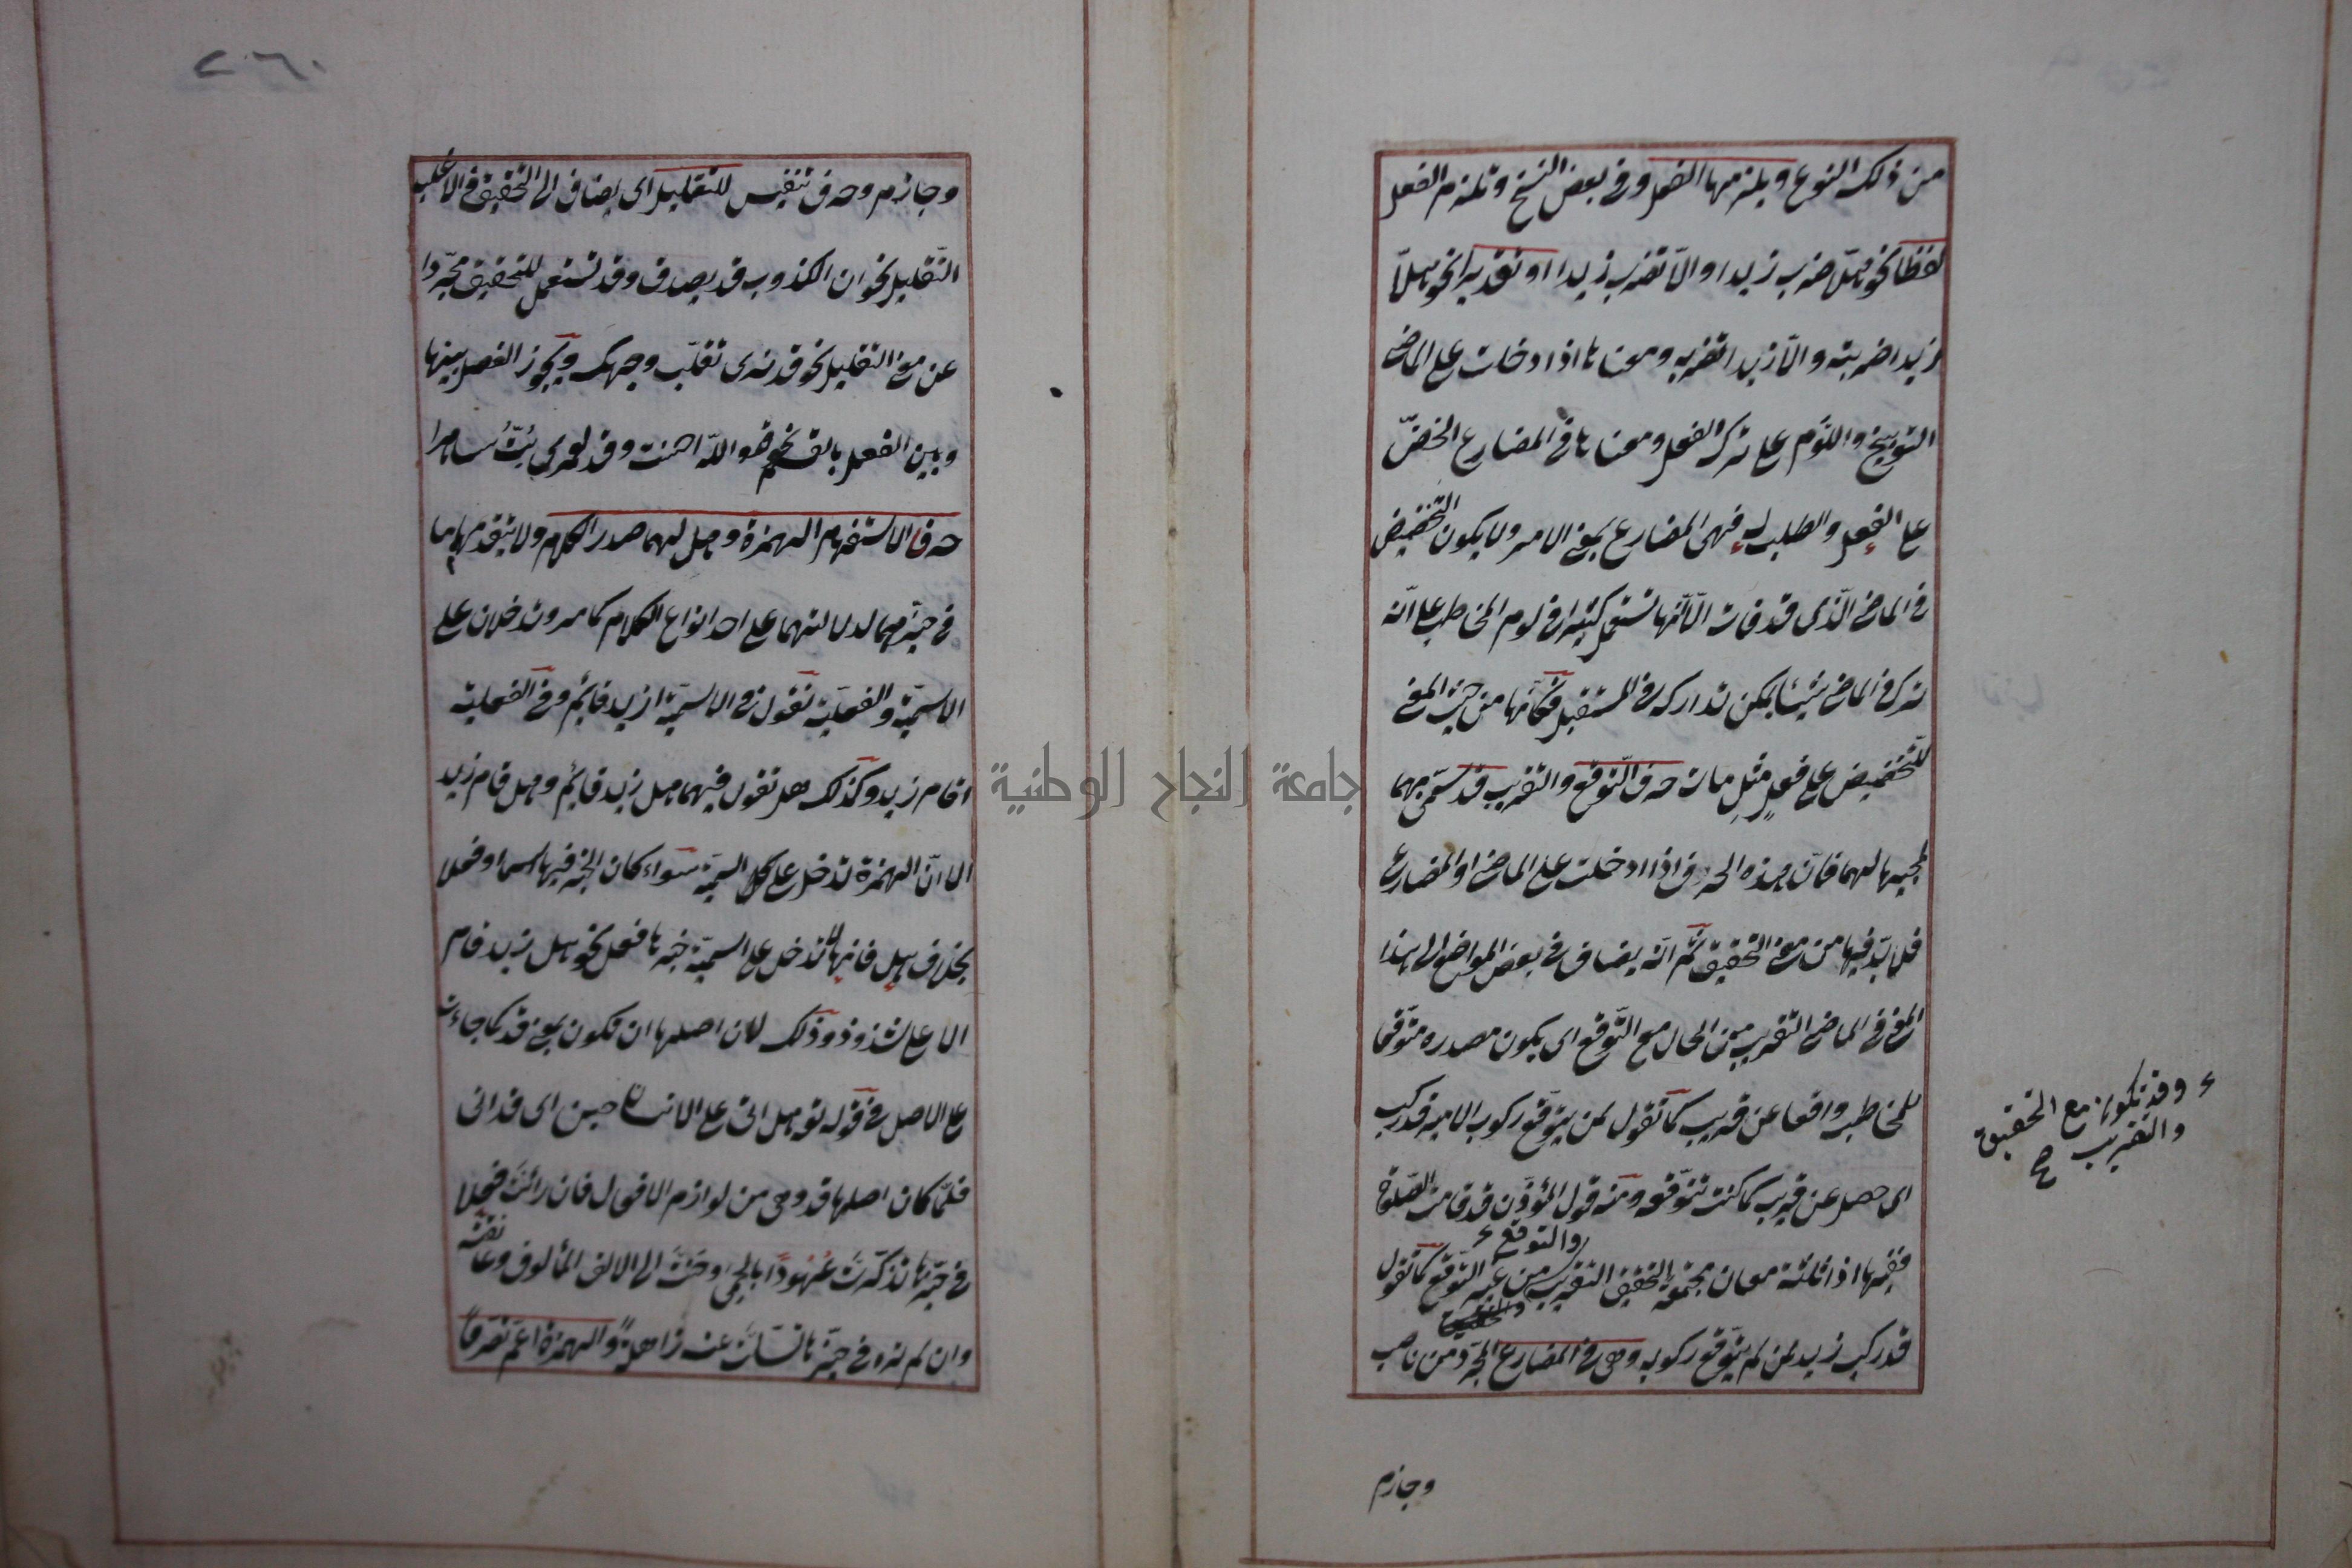 من ذلك النوع ويلزمها الفعل وفي بعض النسخ وتلزم الفعل
لفظا نحو هلّا ضرب زيدا والّا تضرب زيدا او تقديرا نحو هلّا
زيدا ضربته والّا زيدا تضربه ومعناها اذا دخلت على الماضى
التوبيخ واللّوم على ترك الفعل ومعناها في المضارع الحضّ
على الفعل والطلب له فهى في المضارع بمعنى الامر ولا يكون التحضيض
في الماضى الّذى قد فات الّا انّها تستعمل كثيرا في لوم المخاطب على انّه
ترك في الماضى شيئا يمكن تداركه في المستقبل فكأنّها من حيث المعنى
للتحضيض على فعلٍ مثلِ ما فات حرف التّوقع والتقريب قد سمّى بهما
لمجيئها لهما فانّ هذه الحرف اذا دخلت على الماضى او المضارع
فلا بدّ فيها من معنى التحقيق ثم انّه يضاف في بعض المواضع الى هذا
المعنى في الماضى التقريب من الحال مع التّوقع اى يكون مصدره متوّقعا
للمخاطب واقعا عن قريب كما تقول لمن يتوقّع ركوب الامير قد ركب
اى حصل عن قريب ما كنت تتوقّعه ومنه قول المؤذّن قد قامت الصّلوة
ففيها اذا ثلثة معان مجتمعة التحقيق التقريب والتوقع من غير التّوقع كما تقول
قد ركب زيد لمن لم يتوّقع ركوبه وهى في المضارع المجرّد من ناصب
وقد تكون مع التحقيق
والتقريب صح
وجازم
٢٦٠
وجازم وحرف تنفيس للتقليل اى يضاف الى التحقيق في الاغلب
التّقليل نحو ان الكذوب قد يصدق وقد تستعمل للتحقيق مجرّدا
عن معنى التقليل نحو قد نرى تقلّب وجهك ويجوز الفصل بينها
وبين الفعل بالقسم نحو قد والله احسنت وقد لعمرى بِتُّ ساهرا
حرفا الاستفهام الهمزة وهل لهما صدر الكلام ولا يتقدمهما ما
في حيّزهما لدلالتهما على احد انواع الكلام كما مر وتدخلان على
الاسميّة والفعليّة تقول في الاسميّة ازيد قائم وفي الفعلية
اقام زيد وكذلك هل تقول فيهما هل زيد قائم وهل قام زيد
الا انّ الهمزة تدخل على كل اسميّة سواء كان الخبر فيها اسما او فعلا
بخلاف هل فانها لا تدخل على اسميّة خبرها فعل نحو هل زيد قام
الا على شذوذ وذلك لان اصلها ان تكون بمعنى قد كما جاءت
على الاصل في قوله تع هل اتى على الانسان حين اى قد اتى
فلمّا كان اصلها قد وهى من لوازم الافعال فان رأتَ فعلا
في حيّزها تذكّرتَ عُهُودًا بالحمى وحنّتْ الى الالف المألوف وعانقته
وان لم تره في حيّزها تسلّت عنه ذاهلة والهمزة اعمّ تصرفًا
جامعة النجاح الوطنية